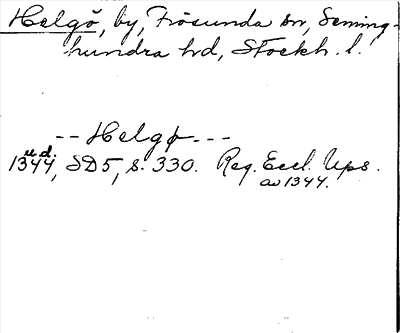 Helgö, by, Frösunda sn, Seming-
hundra hd, Stockh. l.
-- Helgø---
u.d.
1344, SD5, s. 330. Reg. Eccl. Ups.
av 1344.